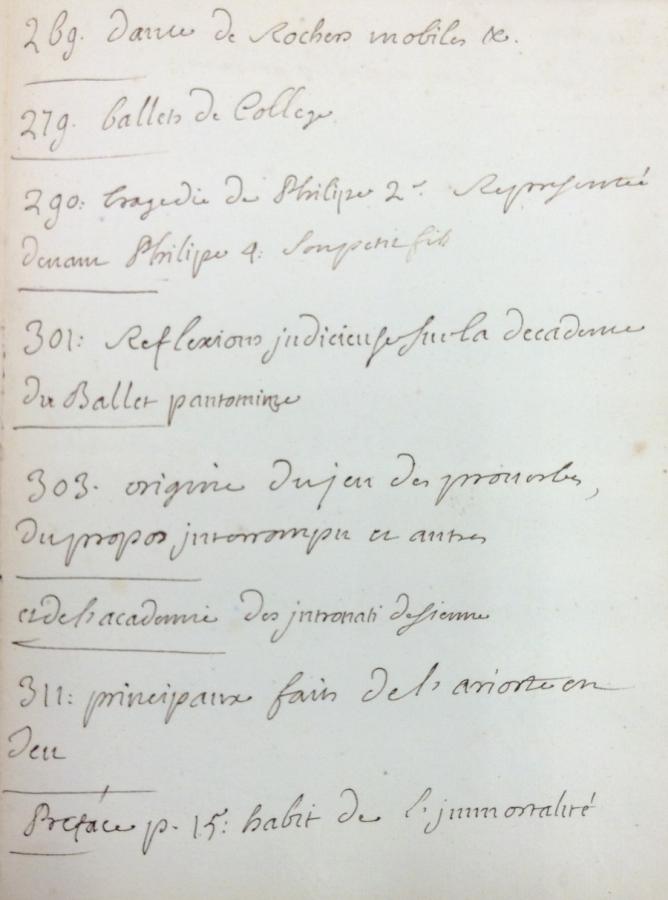 269. danse de Rochers mobiles &c.
279. ballets de College
290: tragedie de Philipe 2d. Representé
devant Philipe 4: son petit fils
301: Reflexions judicieuse sur la decadence
du Ballet pantomime
303. origine du jeu des proverbes,
du propos jnterrompu et autres
et de l'academie des jntronati de sienne
311: principaux faits de l'arioste en
jeu
Preface p. 15: habit de l'jmmortalité